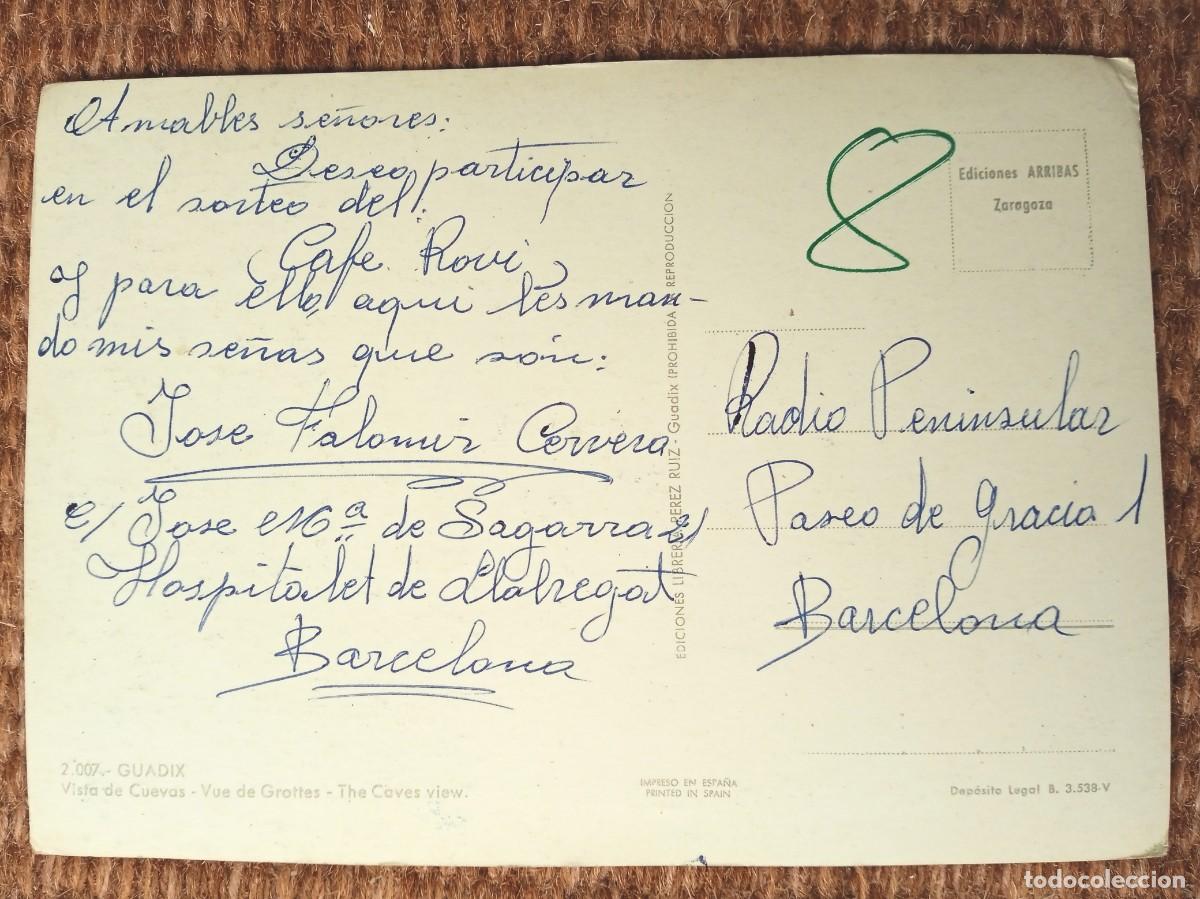 Amables señores:
Deseo participar
en el sorteo del:
Cafe Rovi,
y para ello, aqui les man-
do mis señas que són:
Jose Falomir Cervera
c/ Jose Mª de Sagarra 21
Hospitalet de Llobregat
Barcelona
2.007.- GUADIX
Vista de Cuevas - Vue de Grottes - The Caves view.
EDICIONES LIBRERIA PEREZ RUIZ - Guadix (PROHIBIDA REPRODUCCION
IMPRESO EN ESPAÑA
PRINTED IN SPAIN
8
Ediciones ARRIBAS
Zaragoza
Radio Peninsular
Paseo de gracia 1
Barcelona
Depósito Legal B. 3.538-V
todocoleccion